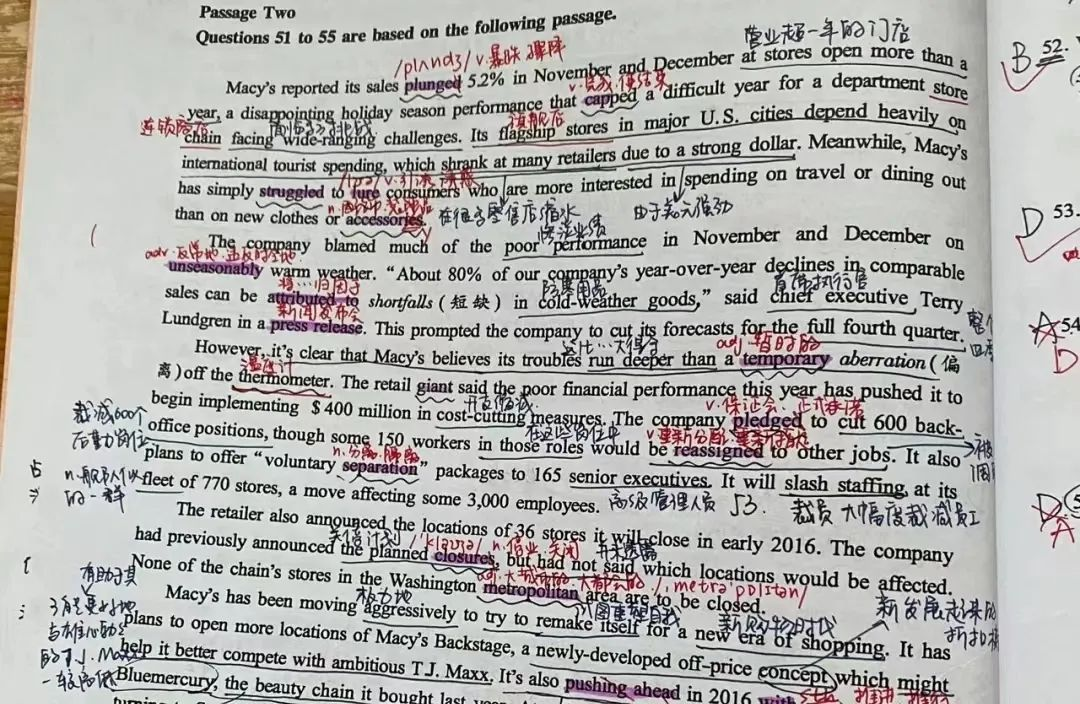 Passage Two
Questions 51 to 55 are based on the following passage.
营业超一年的门店
B 52.
/plʌndʒ/ v.暴跌 骤降
Macy's reported its sales plunged 5.2% in November and December at stores open more than a
v.完成,使结束
year, a disappointing holiday season performance that capped a difficult year for a department store
连锁商店 面临 挑战 旗舰店
chain facing wide-ranging challenges. Its flagship stores in major U.S. cities depend heavily on
international tourist spending, which shrank at many retailers due to a strong dollar. Meanwhile, Macy's
v.引诱
has simply struggled to lure consumers who are more interested in spending on travel or dining out
D 53.
在很多零售店缩水 由于美元强劲
than on new clothes or accessories.
The company blamed much of the poor performance in November and December on
adv.反常地
unseasonably warm weather. "About 80% of our company's year-over-year declines in comparable
将…归因于 防寒用品 首席执行官
sales can be attributed to shortfalls (短缺) in cold-weather goods," said chief executive Terry
新闻发布会
Lundgren in a press release. This prompted the company to cut its forecasts for the full fourth quarter.
A 54
D
adj.暂时的
However, it's clear that Macy's believes its troubles run deeper than a temporary aberration (偏
温度计
离) off the thermometer. The retail giant said the poor financial performance this year has pushed it to
开支缩减 v.保证会,正式承诺
begin implementing $400 million in cost-cutting measures. The company pledged to cut 600 back-
裁减600个
后勤岗位
在这些岗位中 v.重新分配
office positions, though some 150 workers in those roles would be reassigned to other jobs. It also
n.分离
plans to offer "voluntary separation" packages to 165 senior executives. It will slash staffing at its
的一群
fleet of 770 stores, a move affecting some 3,000 employees.
高级管理人员 53. 裁员 大幅度裁减员工
D
A
The retailer also announced the locations of 36 stores it will close in early 2016. The company
关停计划 n.停业,关闭 并未透露
had previously announced the planned closures, but had not said which locations would be affected.
adj.大城市的 大都会的 /,metrə'politən/
None of the chain's stores in the Washington metropolitan area are to be closed.
极力地 试图重塑自我 新购物时代
Macy's has been moving aggressively to try to remake itself for a new era of shopping. It has
有助于其
plans to open more locations of Macy's Backstage, a newly-developed off-price concept which might
新发展起来的
help it better compete with ambitious T.J. Maxx. It's also pushing ahead in 2016 with
Bluemercury, the beauty chain it bought last year.